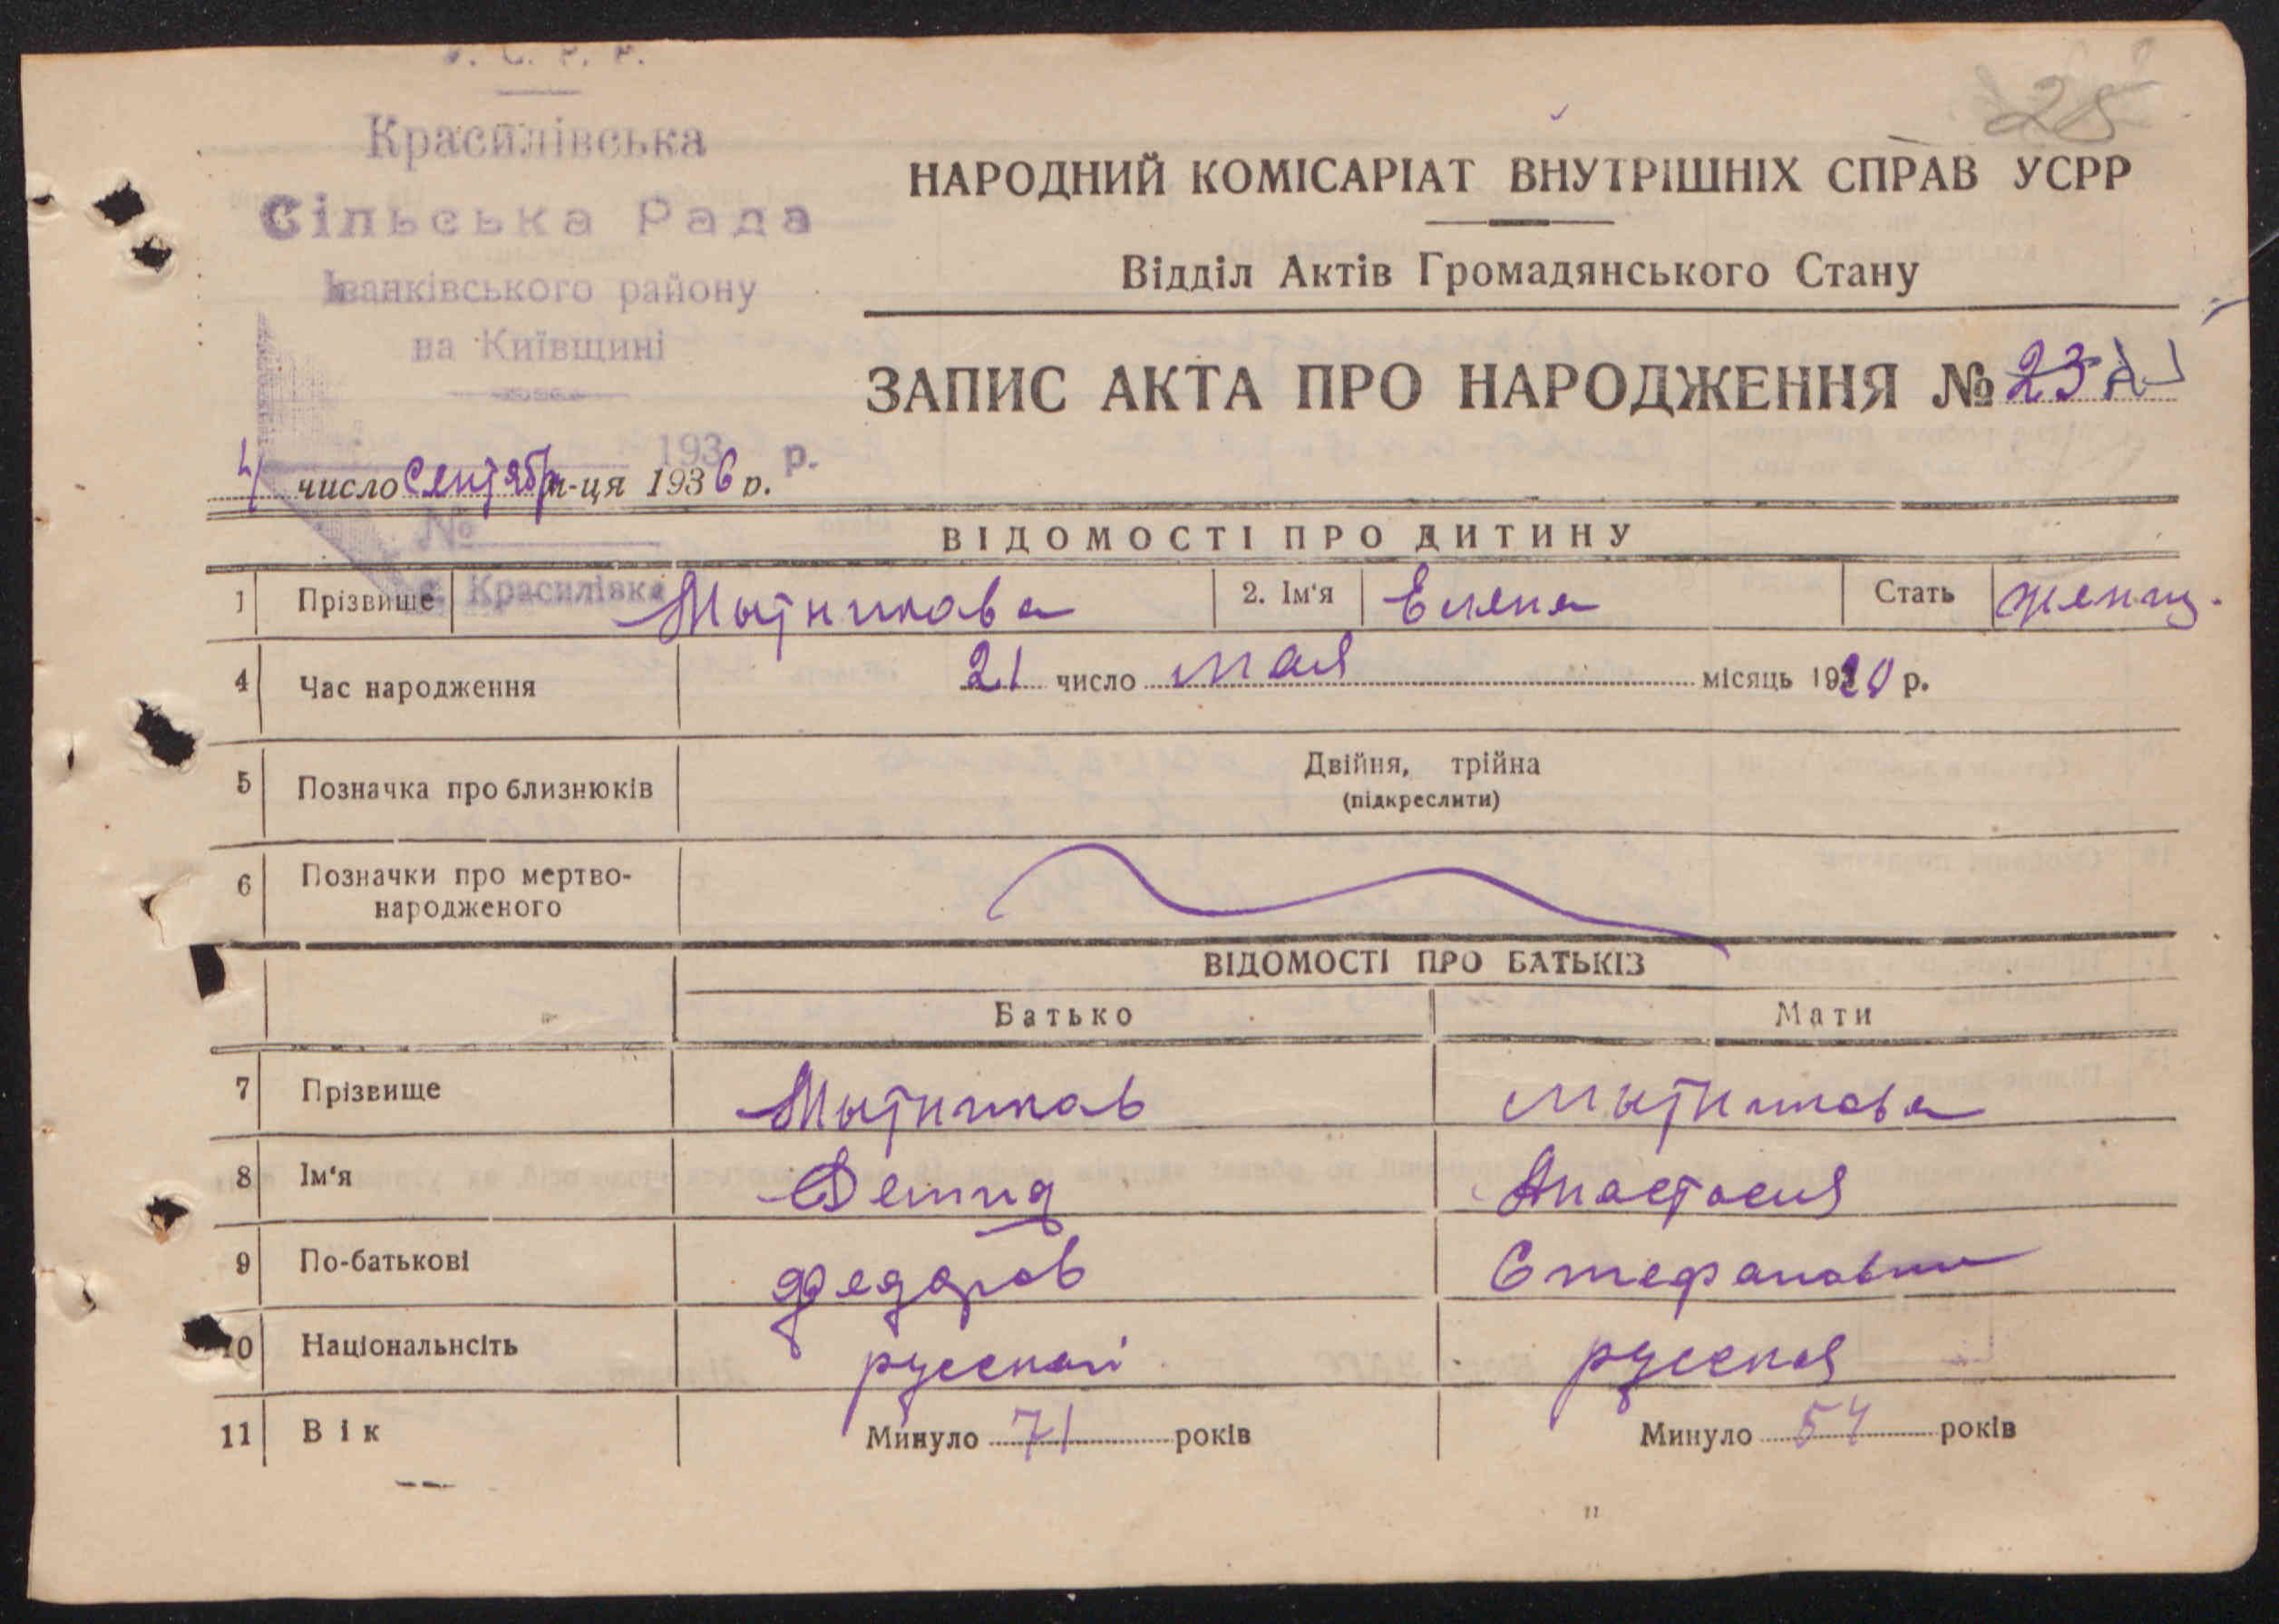 У. С. Р. Р.
Красилівська
Сільська Рада
Іванківського району
на Київщині
193 р.
№
с. Красилівка
28
НАРОДНИЙ КОМІСАРІАТ ВНУТРІШНІХ СПРАВ УСРР
Відділ Актів Громадянського Стану
ЗАПИС АКТА ПРО НАРОДЖЕННЯ № 23
4 число Сентябр м-ця 1936 р.
ВІДОМОСТІ ПРО ДИТИНУ
1 Прізвище Мытникова 2. Ім'я Елена Стать женщ.
4 Час народження 21 число мая місяць 1920 р.
5 Позначка про близнюків Двійня, трійна
(підкреслити)
6 Позначки про мертво-
народженого
ВІДОМОСТІ ПРО БАТЬКІВ
Батько Мати
7 Прізвище Мытников Мытникова
8 Ім'я Демид Анастасия
9 По-батькові Федоров Стефановни
10 Національнсіть русский русская
11 Вік Минуло 71 років Минуло 54 років